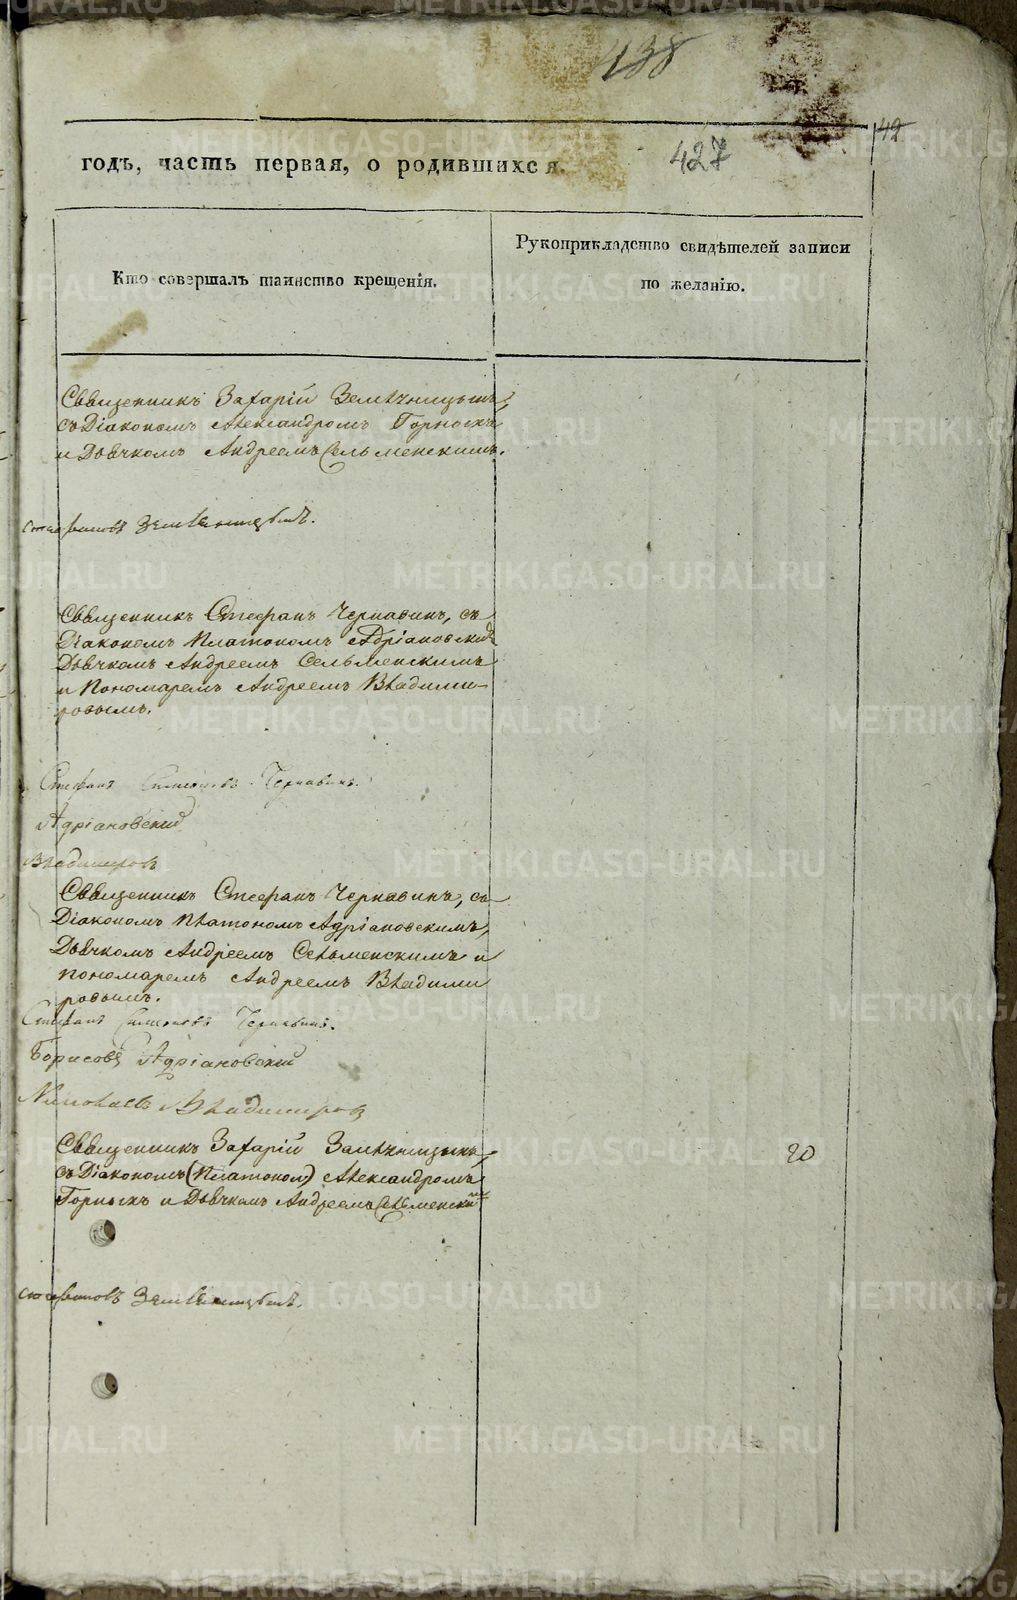 438
42
годъ, часть первая, о родившихся.
427
Кто совершалъ таинство крещенія.
Рукоприкладство свидѣтелей записи
по желанію.
Священникъ Захарій Землѣницынъ,
съ Діакономъ Александромъ Горныхъ
и Дьячкомъ Андреемъ Сельменскимъ.
Землѣницынъ.
Священникъ Стефанъ Чернавинъ, съ
Діакономъ Платономъ Адріановскимъ
Дьячкомъ Андреемъ Сельменскимъ
и Пономаремъ Андреемъ Владими-
ровымъ.
Стефанъ Симеоновъ Чернавинъ.
Адріановскій
Владимировъ
Священникъ Стефанъ Чернавинъ, съ
Діакономъ Платономъ Адріановскимъ,
Дьячкомъ Андреемъ Сельменскимъ и
пономаремъ Андреемъ Владими
ровымъ.
Стефанъ Симеоновъ Чернавинъ.
Борисовъ Адріановскій
Владимировъ
Священникъ Захарій Землѣницынъ,
съ Діакономъ (Платоном) Александромъ
Горныхъ и Дьячкомъ Андреемъ Сельменскимъ
20
Землѣницынъ.
METRIKI.GASO-URAL.RU